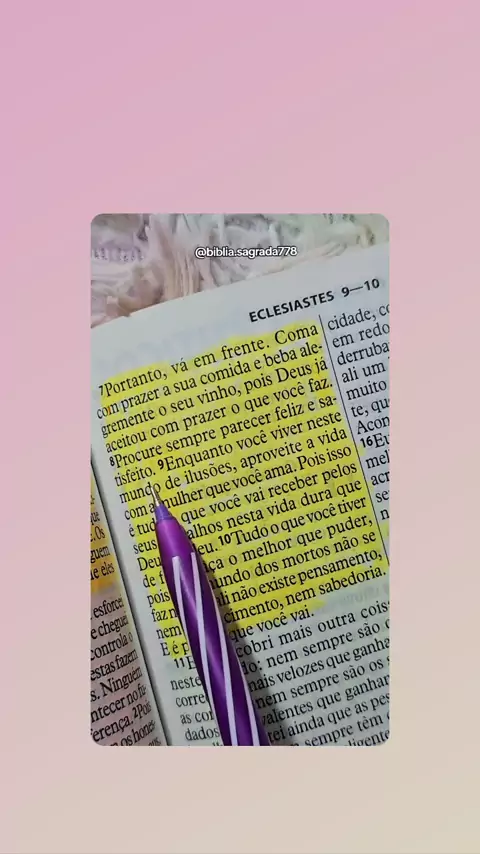 @biblia.sagrada778
ECLESIASTES 9—10
7Portanto, vá em frente. Coma
com prazer a sua comida e beba ale-
gremente o seu vinho, pois Deus já
aceitou com prazer o que você faz.
8Procure sempre parecer feliz e sa-
tisfeito. 9Enquanto você viver neste
mundo de ilusões, aproveite a vida
com a mulher que você ama. Pois isso
é tud que você vai receber pelos
seus alhos nesta vida dura que
Deu eu. 10Tudo o que você tiver
de f ça o melhor que puder,
pois undo dos mortos não se
faz li não existe pensamento,
nem cimento, nem sabedoria.
E é p que você vai.
11E cobri mais outra cois
neste do: nem sempre são
corre mais velozes que ganha
as cor nem sempre são os
dados valentes que ganham
tei ainda que as pes
sempre têm
ligente
cidade, c
em redo
derruba
ali um
muito
te, qu
Acon
16Eu
mel
acr
se
n
que
Os
guem
e eles
esforce
e chegue
controla o
estas fazem
s. Ninguém
ntecer no fu-
ferença. 2Pois
m os hones